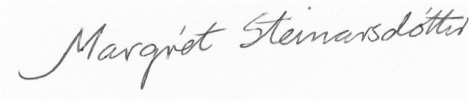 Margrét Steinarsdóttir